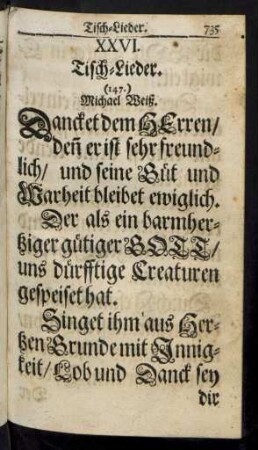 Tisch-Lieder. 735
XXVI.
Tisch-Lieder.
(147.)
Michael Weiß.
Dancket dem HErren/
deñ er ist sehr freund-
lich/ und seine Güt und
Warheit bleibet ewiglich.
Der als ein barmher-
tziger gütiger GOTT/
uns dürfftige Creaturen
gespeiset hat.
Singet ihm aus Her-
tzen Grunde mit Innig-
keit/ Lob und Danck sey
dir